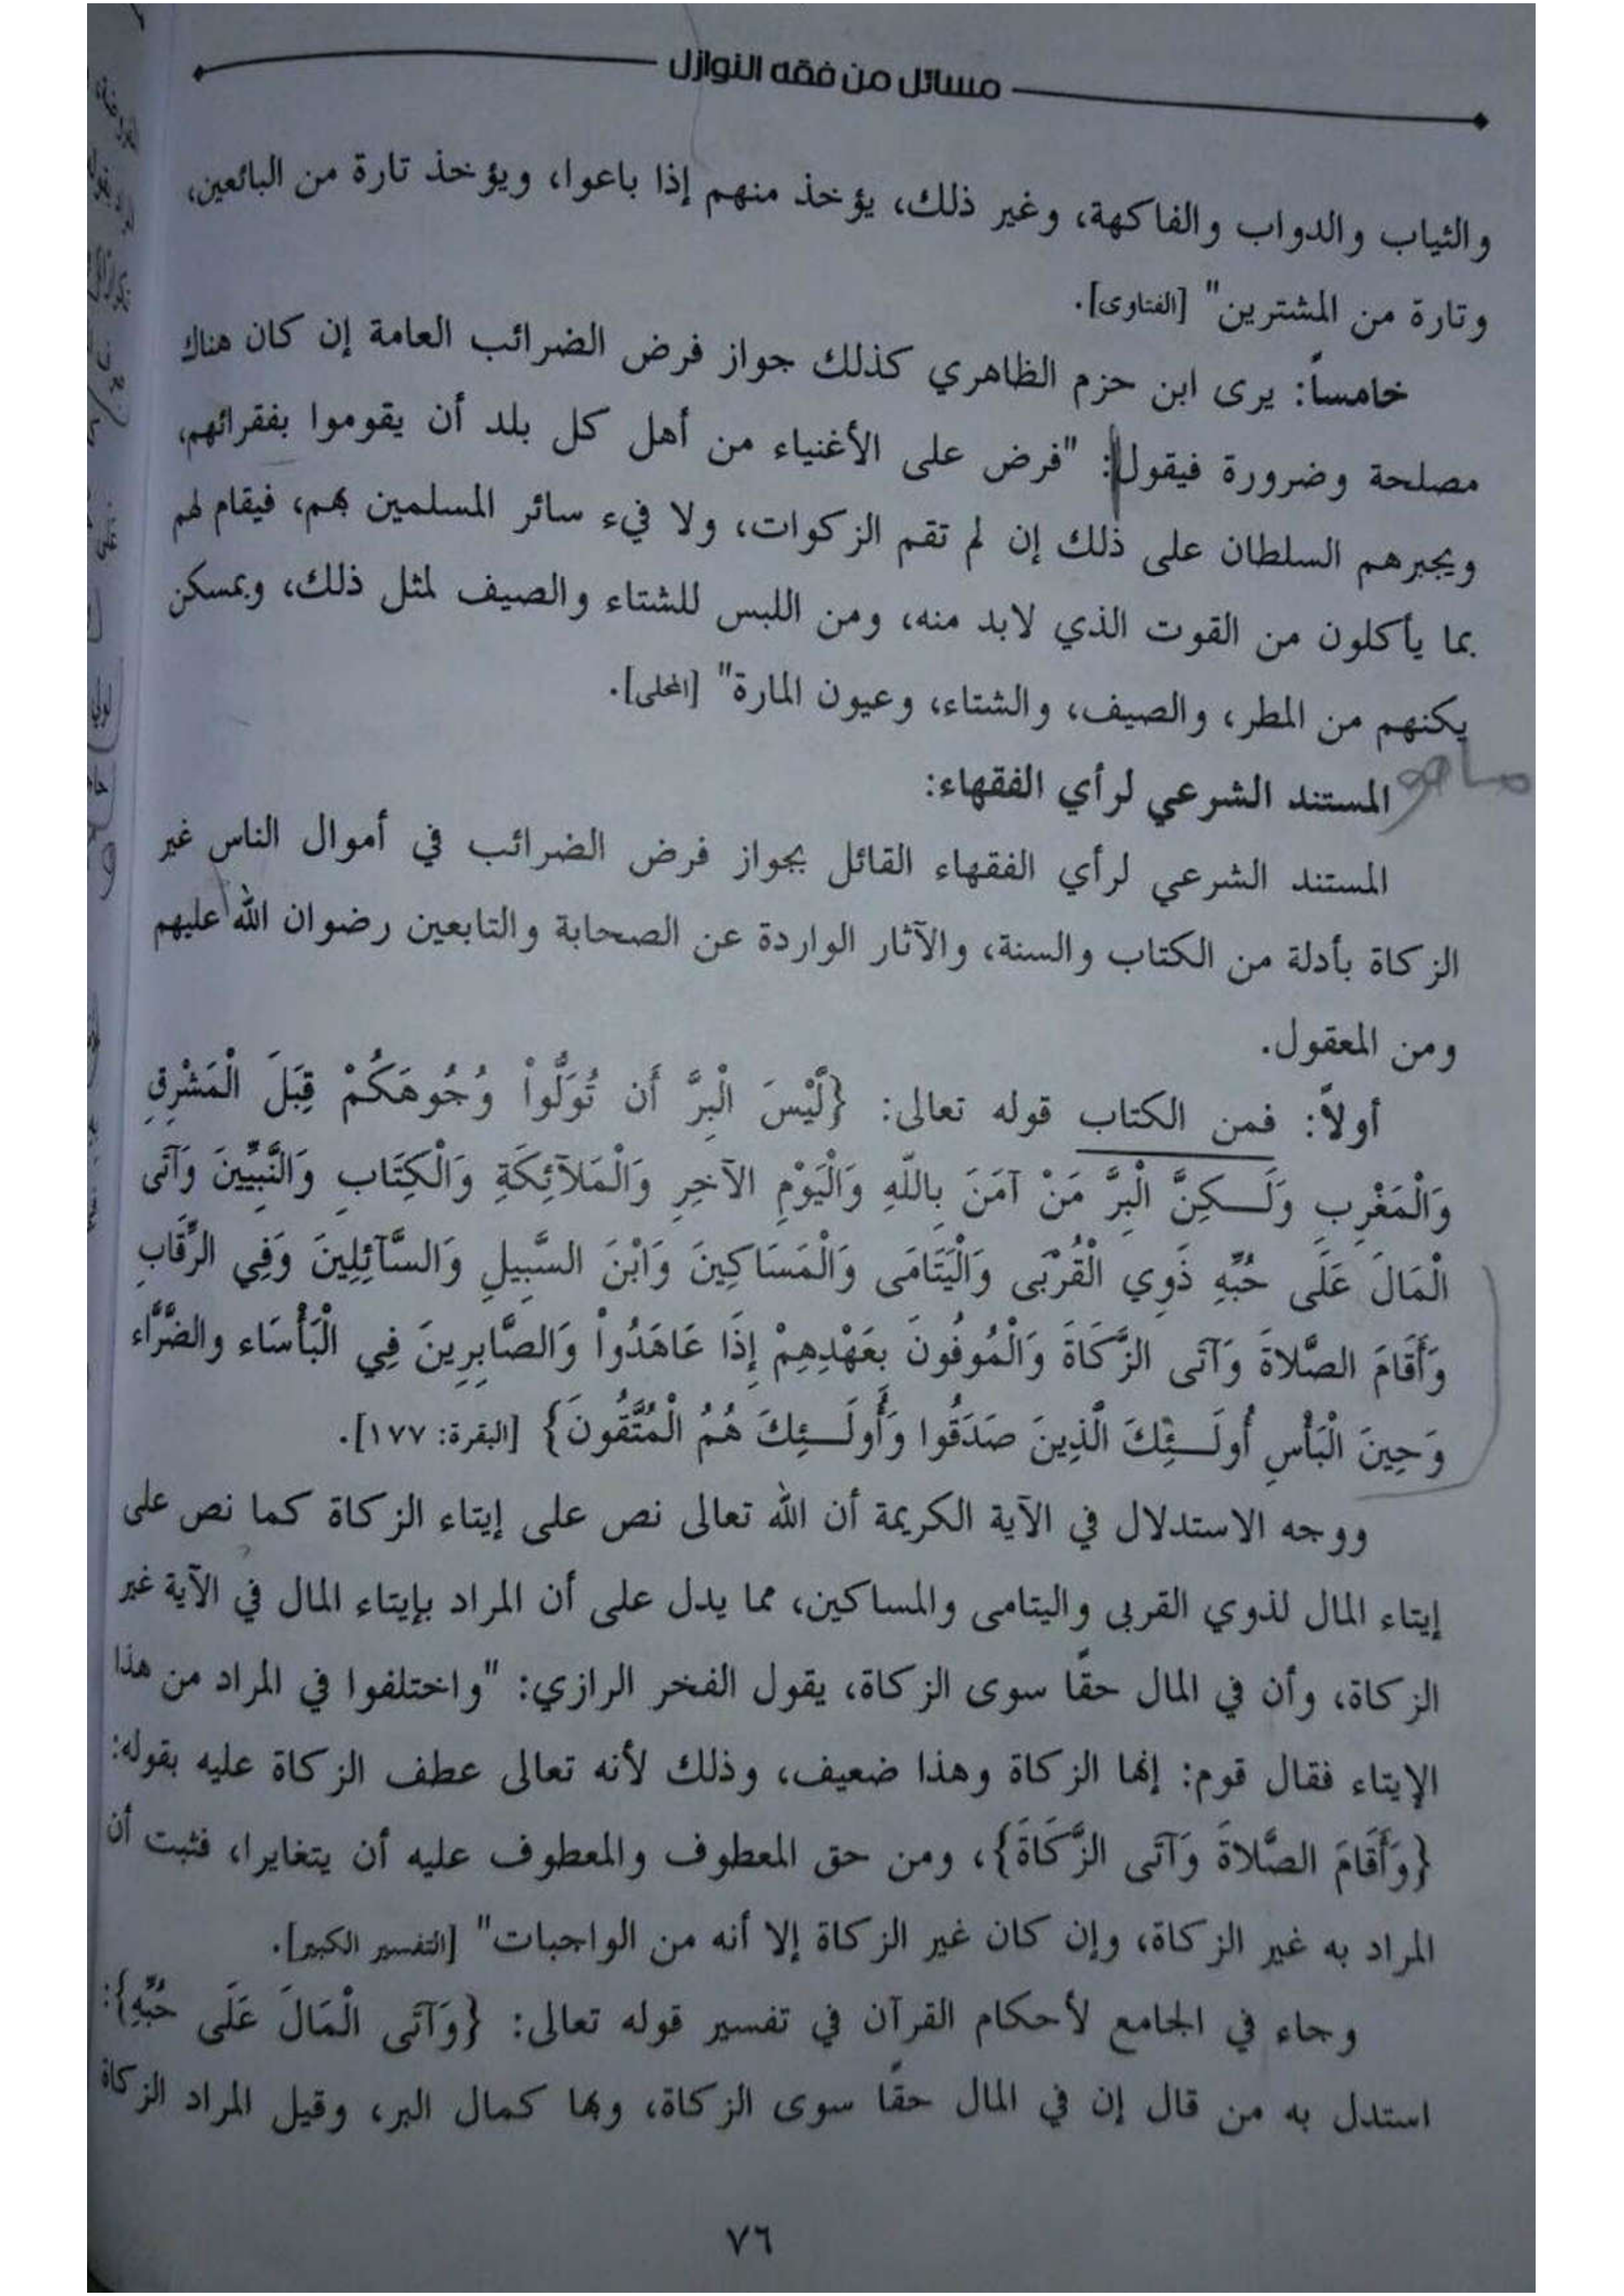 مسائل من فقه النوازل
والثياب والدواب والفاكهة، وغير ذلك، يؤخذ منهم إذا باعوا، ويؤخذ تارة من البائعين،
وتارة من المشترين" [الفتاوى].
خامساً: يرى ابن حزم الظاهري كذلك جواز فرض الضرائب العامة إن كان هناك
مصلحة وضرورة فيقول: "فرض على الأغنياء من أهل كل بلد أن يقوموا بفقرائهم،
ويجبرهم السلطان على ذلك إن لم تقم الزكوات، ولا فيء سائر المسلمين بهم، فيقام لهم
بما يأكلون من القوت الذي لابد منه، ومن اللبس للشتاء والصيف لمثل ذلك، وبمسكن
يكنهم من المطر، والصيف، والشتاء، وعيون المارة" [المحلى].
ما هو المستند الشرعي لرأي الفقهاء:
المستند الشرعي لرأي الفقهاء القائل بجواز فرض الضرائب في أموال الناس غير
الزكاة بأدلة من الكتاب والسنة، والآثار الواردة عن الصحابة والتابعين رضوان الله عليهم
ومن المعقول.
أولاً: فمن الكتاب قوله تعالى: {لَّيْسَ الْبِرَّ أَن تُوَلُّواْ وُجُوهَكُمْ قِبَلَ الْمَشْرِقِ
وَالْمَغْرِبِ وَلَـكِنَّ الْبِرَّ مَنْ آمَنَ بِاللّهِ وَالْيَوْمِ الآخِرِ وَالْمَلآئِكَةِ وَالْكِتَابِ وَالنَّبِيِّينَ وَآتَى
الْمَالَ عَلَى حُبِّهِ ذَوِي الْقُرْبَى وَالْيَتَامَى وَالْمَسَاكِينَ وَابْنَ السَّبِيلِ وَالسَّآئِلِينَ وَفِي الرِّقَابِ
وَأَقَامَ الصَّلاةَ وَآتَى الزَّكَاةَ وَالْمُوفُونَ بِعَهْدِهِمْ إِذَا عَاهَدُواْ وَالصَّابِرِينَ فِي الْبَأْسَاء والضَّرَّاء
وَحِينَ الْبَأْسِ أُولَـئِكَ الَّذِينَ صَدَقُوا وَأُولَـئِكَ هُمُ الْمُتَّقُونَ} [البقرة: ١٧٧].
ووجه الاستدلال في الآية الكريمة أن الله تعالى نص على إيتاء الزكاة كما نص على
إيتاء المال لذوي القربى واليتامى والمساكين، مما يدل على أن المراد بإيتاء المال في الآية غير
الزكاة، وأن في المال حقًا سوى الزكاة، يقول الفخر الرازي: "واختلفوا في المراد من هذا
الإيتاء فقال قوم: إنها الزكاة وهذا ضعيف، وذلك لأنه تعالى عطف الزكاة عليه بقوله:
{وَأَقَامَ الصَّلاةَ وَآتَى الزَّكَاةَ}، ومن حق المعطوف والمعطوف عليه أن يتغايرا، فثبت أن
المراد به غير الزكاة، وإن كان غير الزكاة إلا أنه من الواجبات" [التفسير الكبير].
وجاء في الجامع لأحكام القرآن في تفسير قوله تعالى: {وَآتَى الْمَالَ عَلَى حُبِّهِ}:
استدل به من قال إن في المال حقًا سوى الزكاة، وبها كمال البر، وقيل المراد الزكاة
٧٦